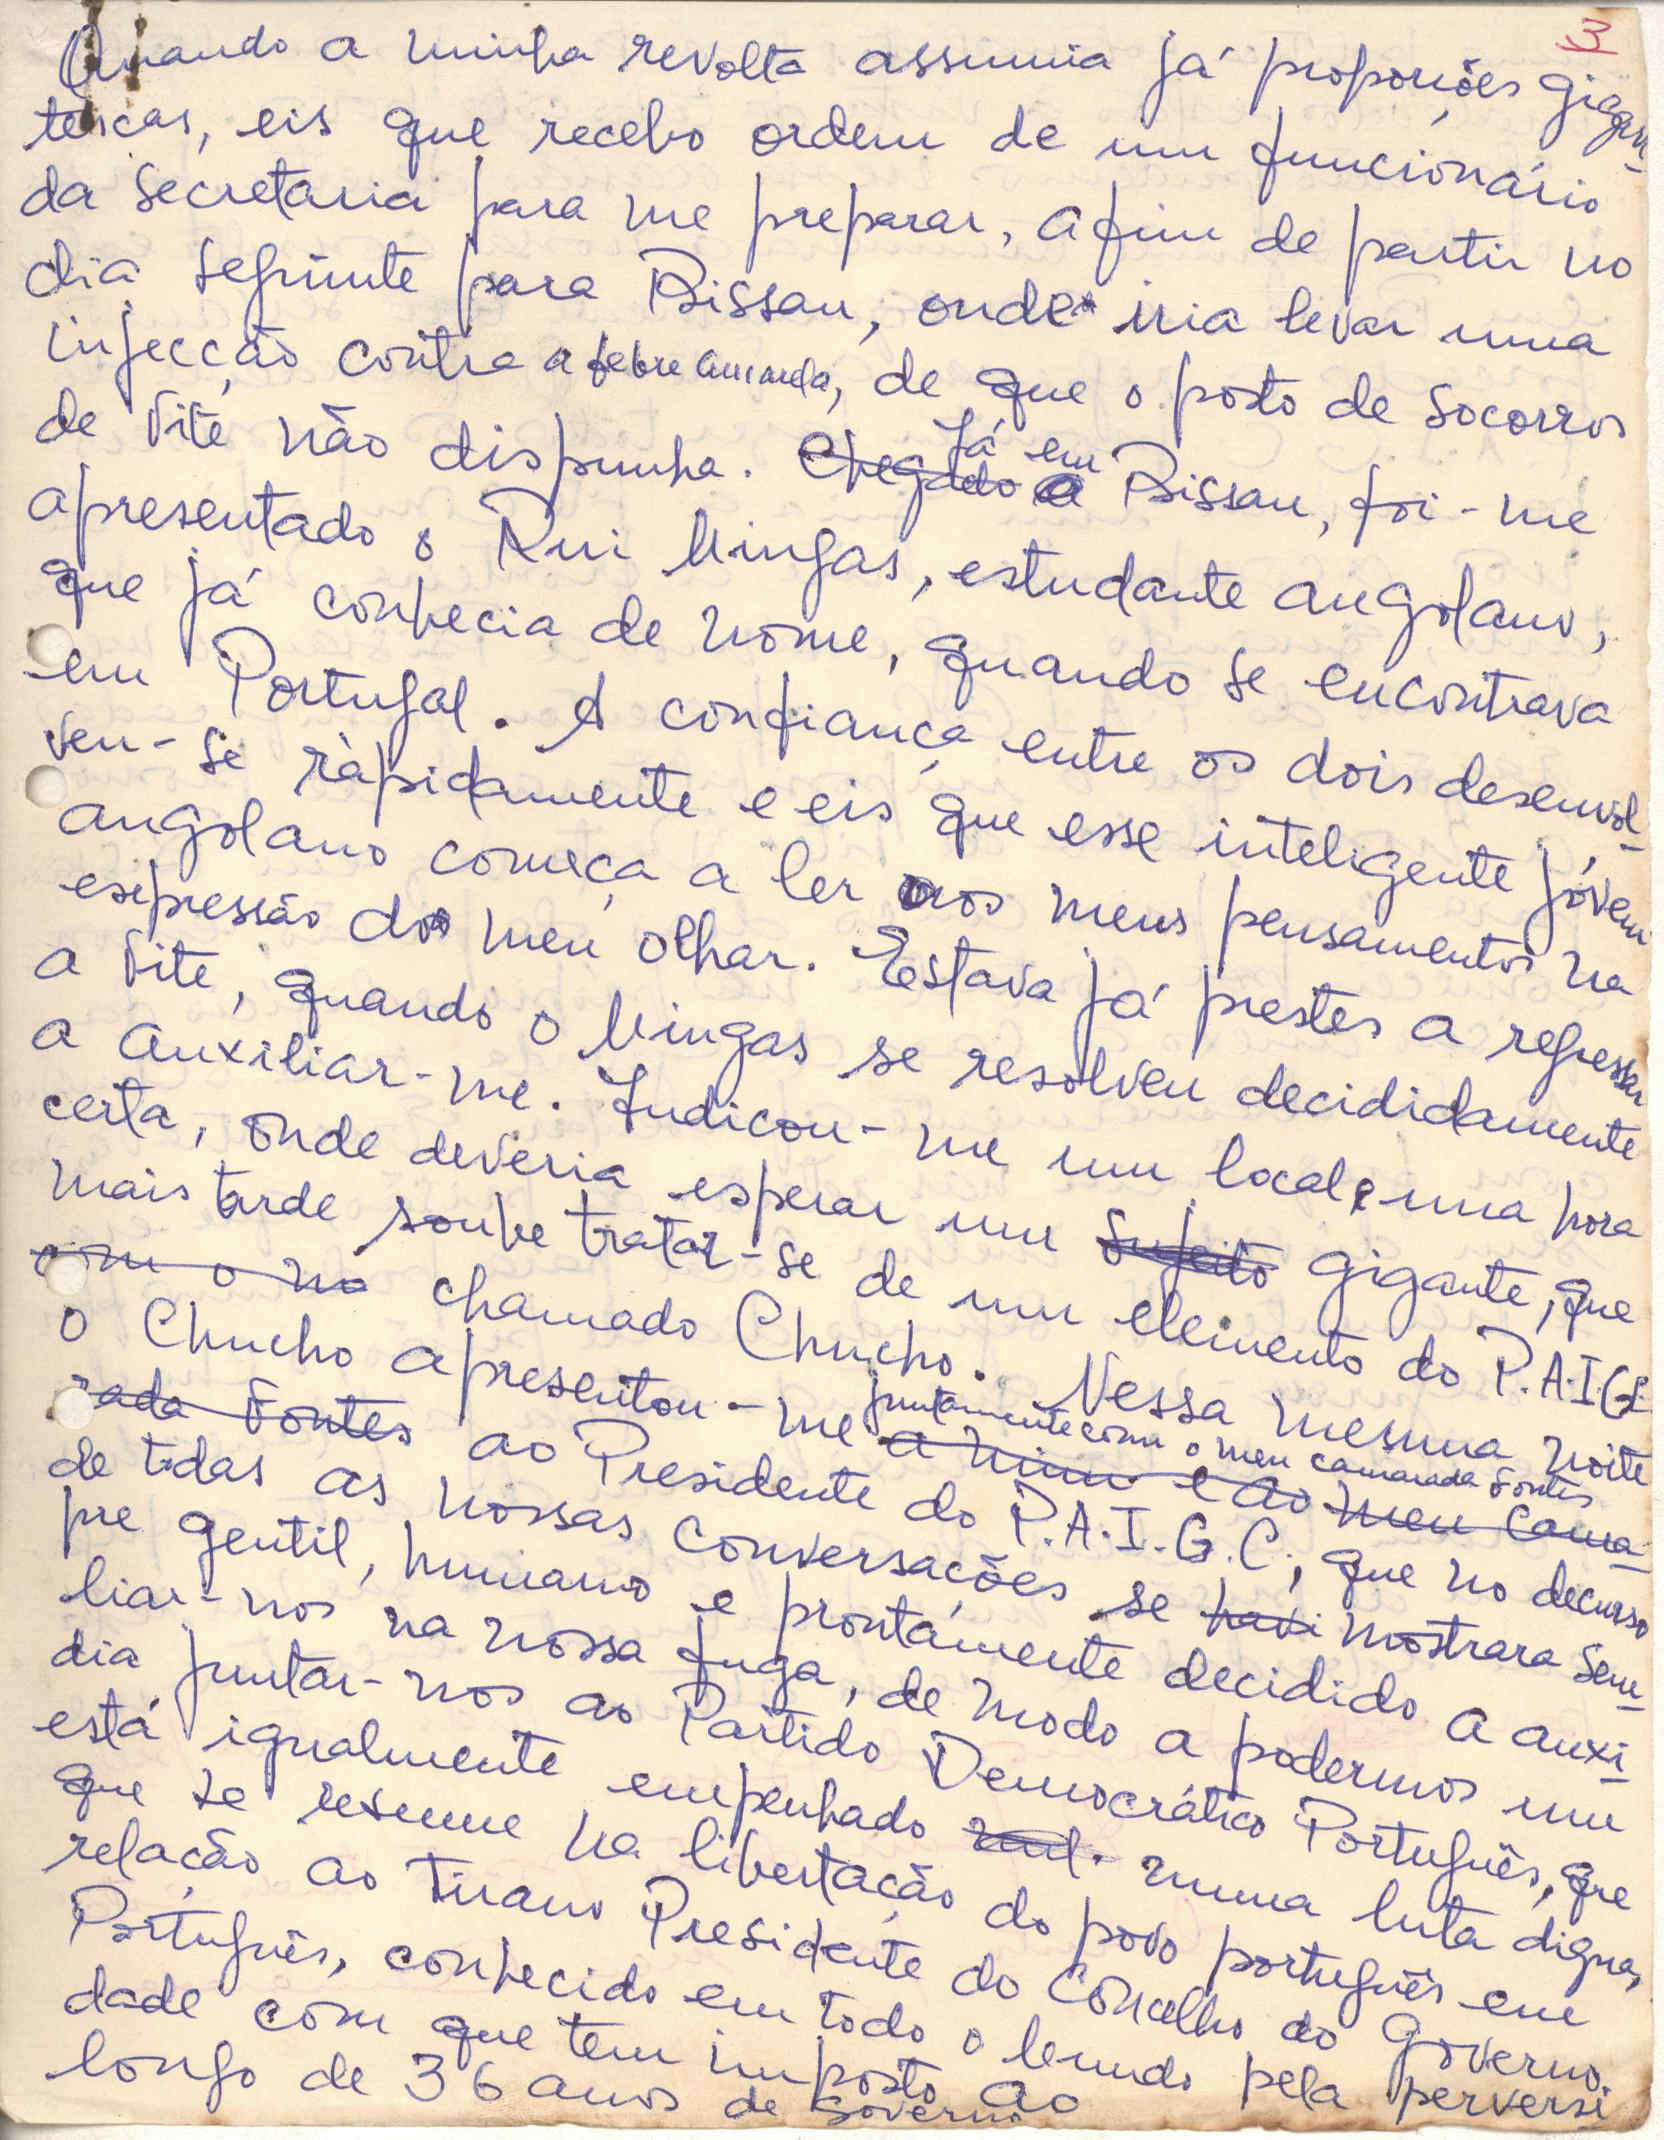 3
Quando a minha revolta assumia já proporções gigan-
tescas, eis que recebo ordem de um funcionário
da secretaria para me preparar, afim de partir no
dia seguinte para Bissau, onde iria levar uma
injecção contra a febre amarela, de que o posto de socorros
de Tite não dispunha. Chegado a Já em Bissau, foi-me
apresentado o Rui Mingas, estudante angolano,
que já conhecia de nome, quando se encontrava
em Portugal. A confiança entre os dois desenvol-
veu-se ràpidamente e eis que esse inteligente jóvem
angolano começa a ler nos meus pensamentos na
expressão do meu olhar. Estava já prestes a regressar
a Tite, quando o Mingas se resolveu decididamente
a auxiliar-me. Indicou-me um local e uma hora
certa, onde deveria esperar um sujeito gigante, que
mais tarde soube tratar-se de um elemento do P.A.I.G.C.
com o no chamado Chucho. Nessa mesma noite
o Chucho apresentou-me a mim e ao meu cama-
juntamente com o meu camarada Fontes
rada Fontes ao Presidente do P.A.I.G.C., que no decurso
de todas as nossas conversações se havi mostrara sem-
pre gentil, humano e prontamente decidido a auxi-
liar-nos na nossa fuga, de modo a podermos um
dia juntar-nos ao Partido Democrático Português, que
está igualmente empenhado numa luta digna,
que se resume na libertação do povo português em
relação ao tirano Presidente do Concelho do Governo
Português, conhecido em todo o Mundo pela perversi
dade com que tem imposto ao
longo de 36 anos de Governo